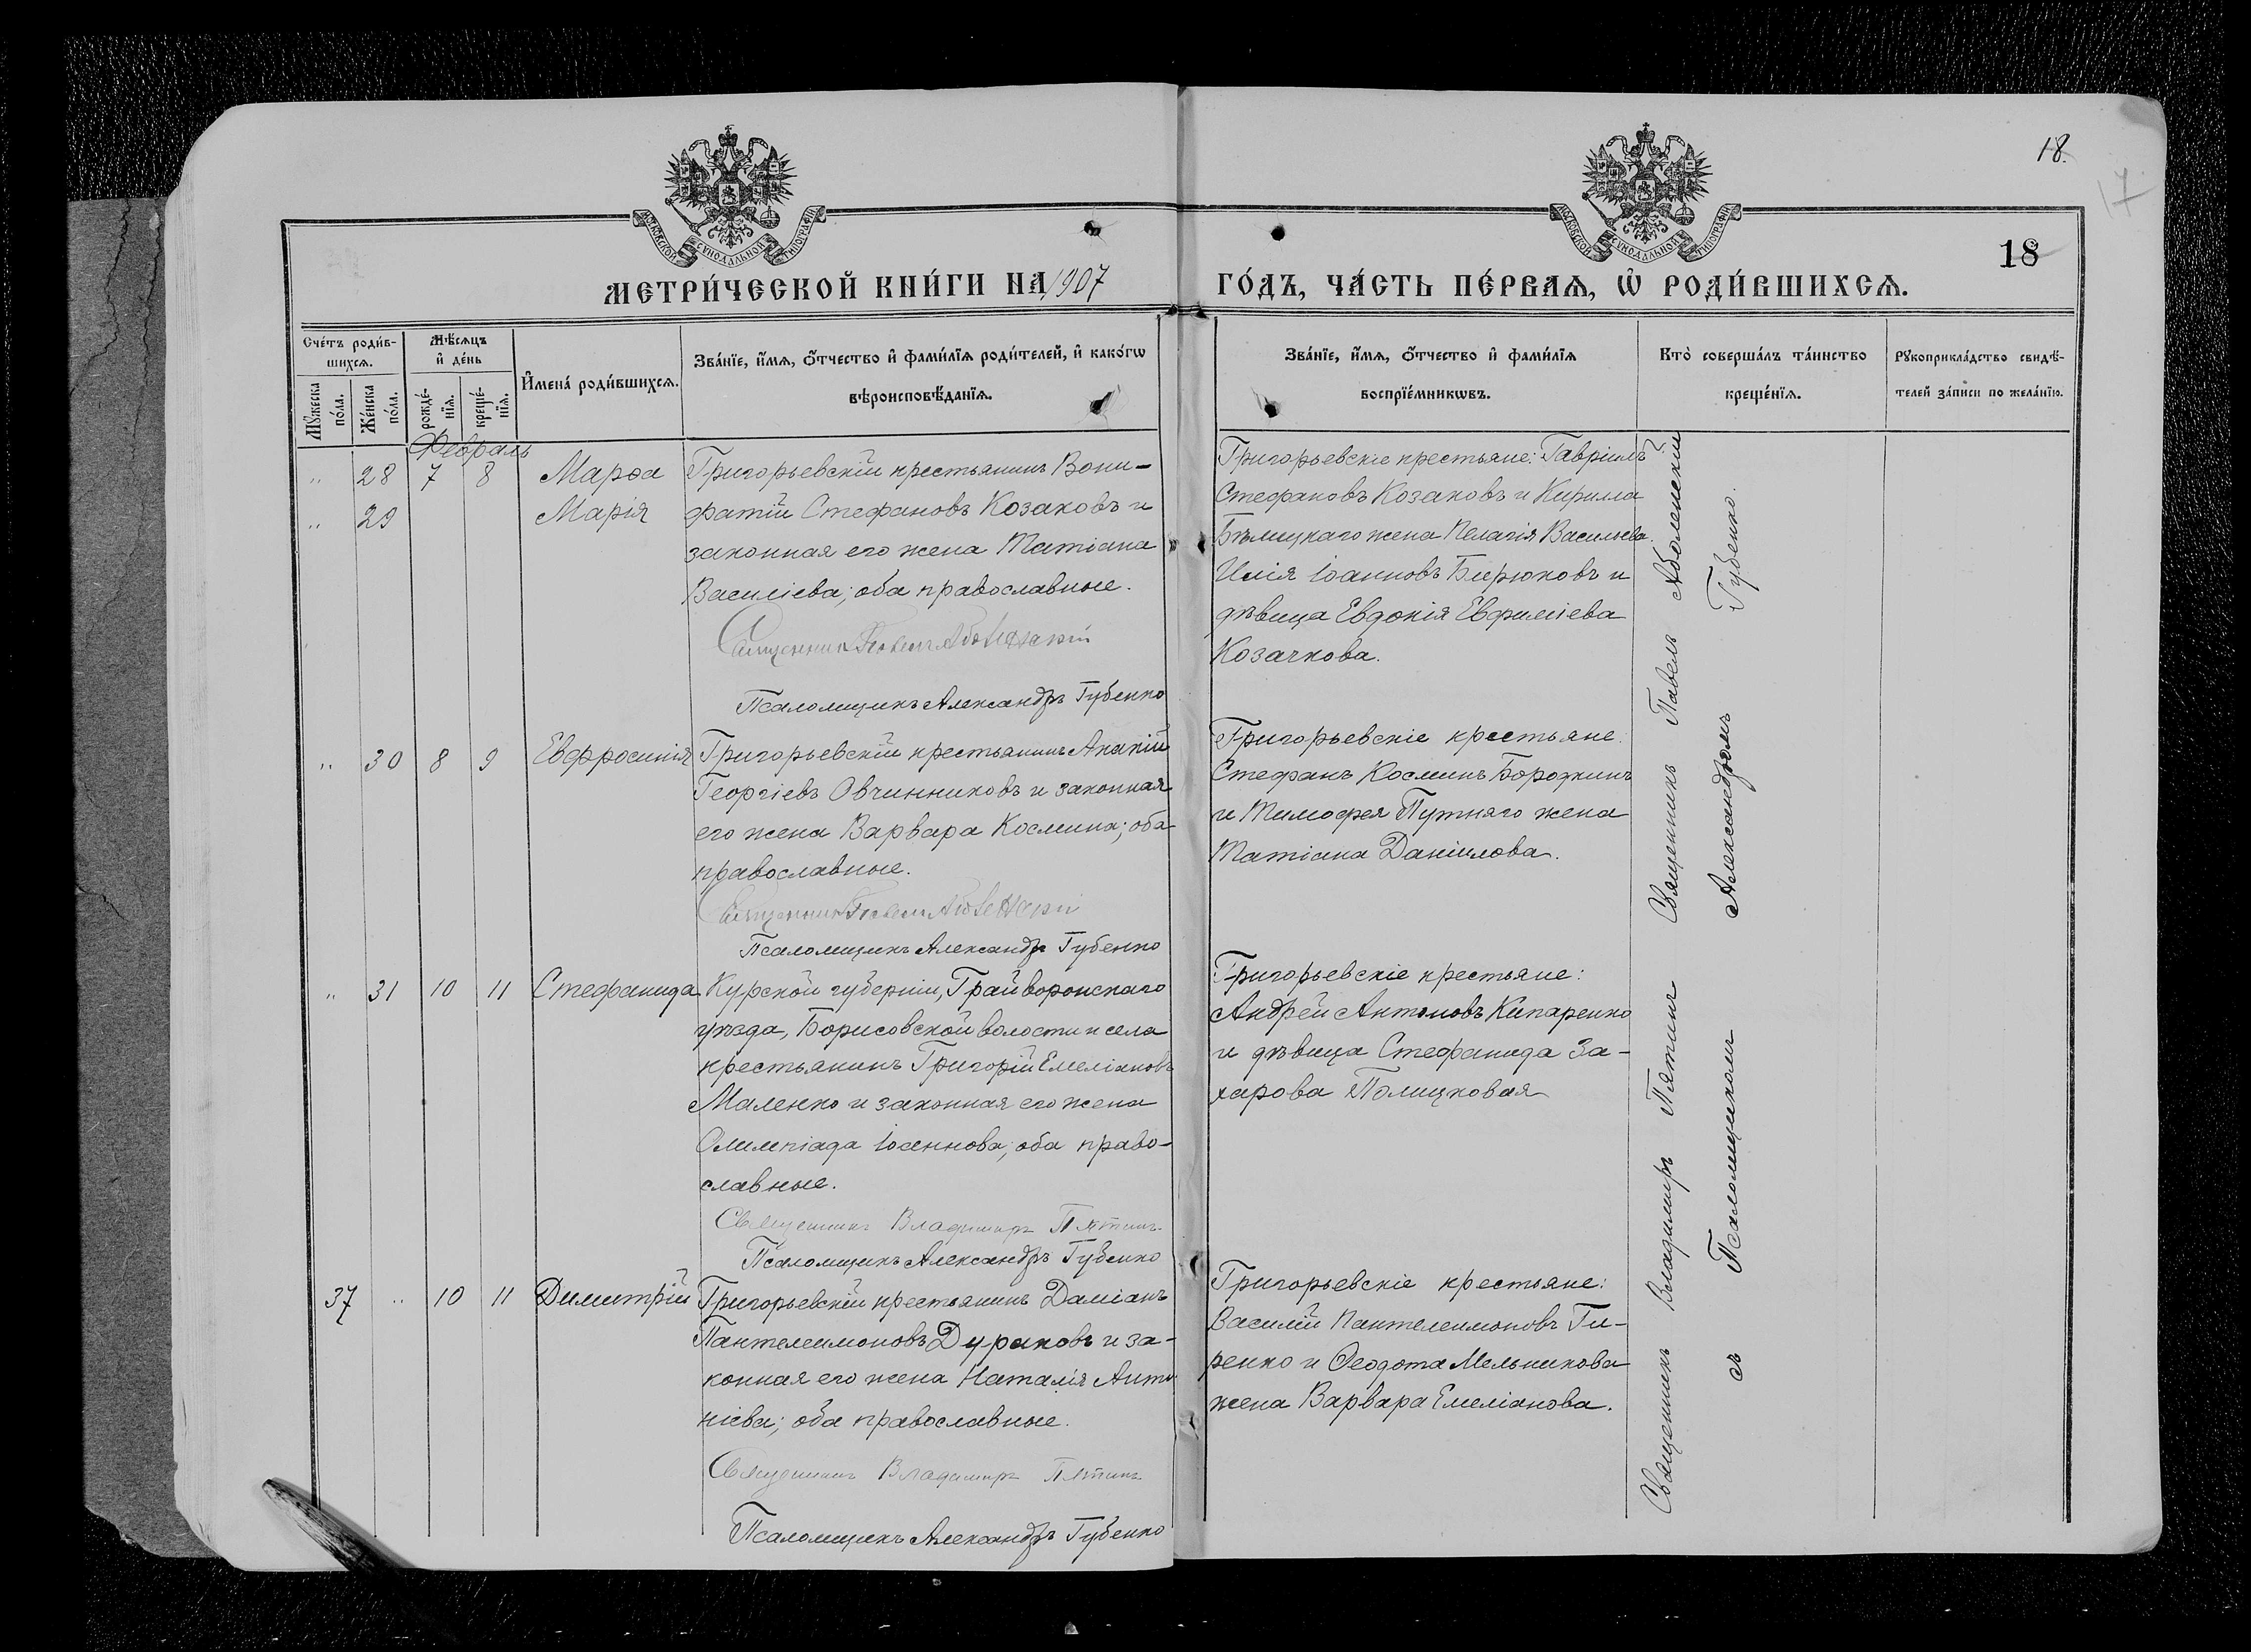 18.
17
МОСКОВСКОЙ СѴНОДАЛЬНОЙ ТИПОГРАФІИ
МОСКОВСКОЙ СѴНОДАЛЬНОЙ ТИПОГРАФІИ
18
МЕТРИ́ЧЕСКОЙ КНИ́ГИ НА 1907
ГО́ДЪ, ЧА́СТЬ ПЕ́РВАѦ, Ѡ҆ РОДИ́ВШИХСѦ.
Сче́тъ роди́в-
шихсѧ.
Мѹ́жеска
по́ла.
Же́нска
по́ла.
Мѣ́сѧцъ
и҆ де́нь
рожде́-
нїѧ.
креще́-
нїѧ.
И҆мена̀ роди́вшихсѧ.
Зва́нїе, и҆́мѧ, ѻ҆́тчество и҆ фами́лїѧ роди́телей, и҆ како́гѡ
вѣроисповѣ́данїѧ.
Зва́нїе, и҆́мѧ, ѻ҆́тчество и҆ фами́лїѧ
воспрїе́мникѡвъ.
Кто̀ соверша́лъ та́инство
креще́нїѧ.
Рꙋкоприкла́дство свидѣ́-
телей за́писи по жела́нїю.
Февраль
„ 28 7 8 Марѳа Григорьевскій крестьянинъ Вони-
„ 29 Марія фатій Стефановъ Козаковъ и
законная его жена Татіана
Василіева; оба православные.
Священникъ Павелъ Аболенскій
Псаломщикъ Александръ Губенко
Григорьевскіе крестьяне: Гавріилъ
Стефановъ Козаковъ и Кирилла
Бѣлицкаго жена Пелагія Васильева.
Илія Іоанновъ Бирюковъ и
дѣвица Евдокія Евфиміева
Козачкова.
„ 30 8 9 Евфросинія Григорьевскій крестьянинъ Ананій
Георгіевъ Овчинниковъ и законная
его жена Варвара Космина; оба
православные.
Священникъ Павелъ Аболенскій
Псаломщикъ Александръ Губенко
Григорьевскіе крестьяне:
Стефанъ Косминъ Бородкинъ
и Тимофея Путняго жена
Татіана Даніилова.
„ 31 10 11 Стефанида Курской губерніи, Грайворонскаго
уѣзда, Борисовской волости и села
крестьянинъ Григорій Емеліановъ
Маленко и законная его жена
Олимпіада Іоаннова; оба право-
славные.
Священникъ Владимиръ Пятинъ
Псаломщикъ Александръ Губенко
Григорьевскіе крестьяне:
Андрей Антоновъ Кипаренко
и дѣвица Стефанида За-
харова Полицковая
37 „ 10 11 Димитрій Григорьевскій крестьянинъ Даміанъ
Пантелеимоновъ Дураковъ и за-
конная его жена Наталія Анто-
ніева; оба православные.
Священникъ Владимиръ Пятинъ
Псаломщикъ Александръ Губенко
Григорьевскіе крестьяне:
Василій Пантелеимоновъ Ги-
ренко и Ѳеодота Мельникова
жена Варвара Емеліанова.
Священникъ Владимиръ Пятинъ Священникъ Павелъ Аболенскій
съ Псаломщикомъ Александромъ Губенко.